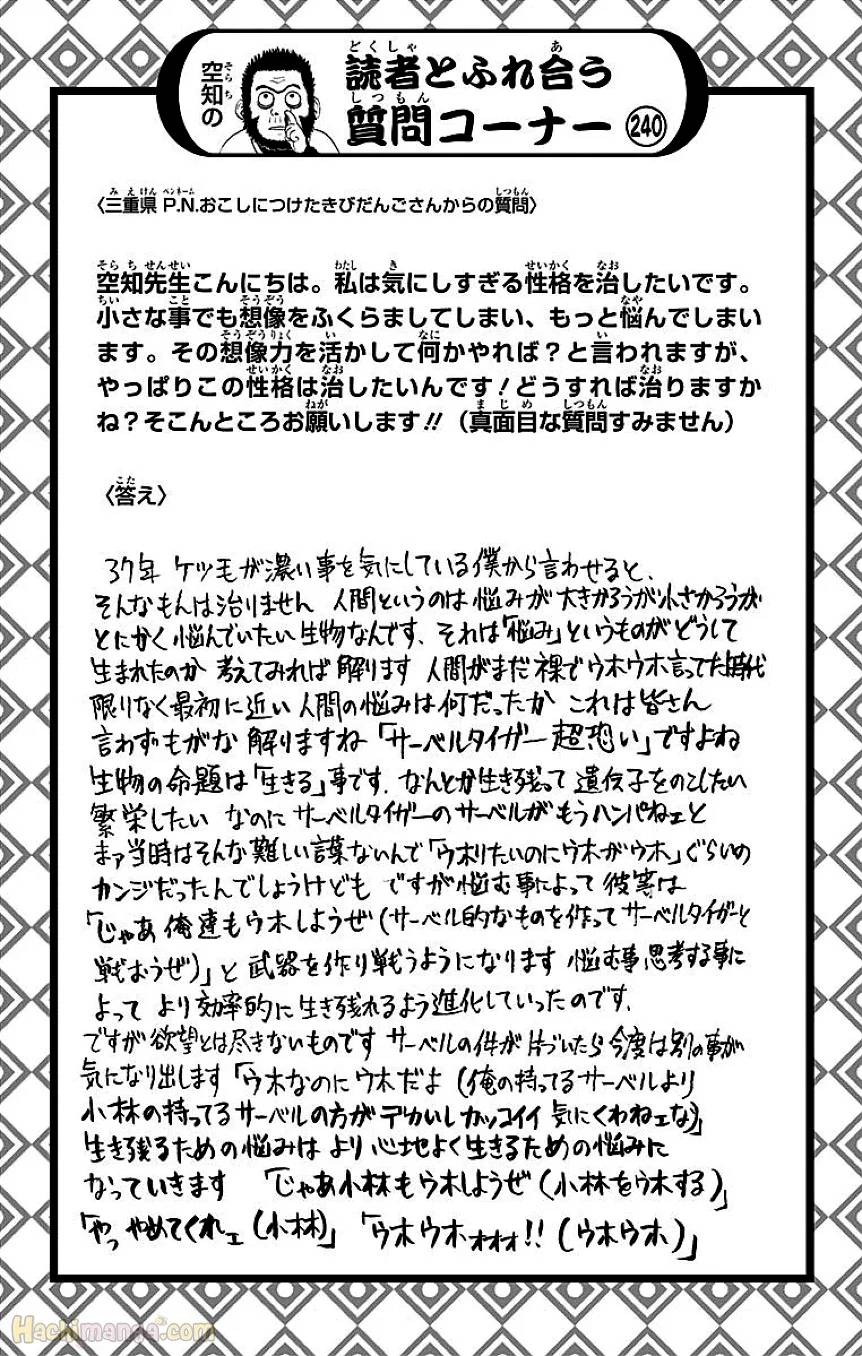 空知の
読者とふれ合う
質問コーナー 240
〈三重県 P.N.おこしにつけたきびだんごさんからの質問〉
空知先生こんにちは。私は気にしすぎる性格を治したいです。
小さな事でも想像をふくらましてしまい、もっと悩んでしまい
ます。その想像力を活かして何かやれば？と言われますが、
やっぱりこの性格は治したいんです！どうすれば治りますか
ね？そこんところお願いします!!（真面目な質問すみません）
〈答え〉
37年 ケツ毛が濃い事を気にしている僕から言わせると、
そんなもんは治りません 人間というのは悩みが大きかろうが小さかろうが
とにかく悩んでいたい生物なんです、それは「悩み」というものがどうして
生まれたのか 考えてみれば解ります 人間がまだ裸でウホウホ言ってた時代
限りなく最初に近い人間の悩みは何だったか これは皆さん
言わずもがな 解りますね「サーベルタイガー超恐い」ですよね
生物の命題は「生きる」事です．なんとか生き残って遺伝子をのこしたい
繁栄したい なのにサーベルタイガーのサーベルがもうハンパねェと
まァ当時はそんな難しい言葉ないんで「ウホりたいのにウホがウホ」ぐらいの
カンジだったんでしょうけども ですが悩む事によって彼等は
「じゃあ俺達もウホしようぜ（サーベル的なものを作ってサーベルタイガーと
戦おうぜ）」と武器を作り戦うようになります 悩む事 思考する事に
よって より効率的に生き残れるよう進化していったのです．
ですが欲望とは尽きないものです サーベルの件が片づいたら今度は別の事が
気になり出します「ウホなのにウホだよ（俺の持ってるサーベルより
小林の持ってるサーベルの方がデカいしカッコイイ 気にくわねェな）」
生き残るための悩みは より心地よく生きるための悩みに
なっていきます 「じゃあ小林もウホしようぜ（小林をウホする）」
「やっ やめてくれェ（小林）」 「ウホウホォォォ!!（ウホウホ）」
Hachimanga.com